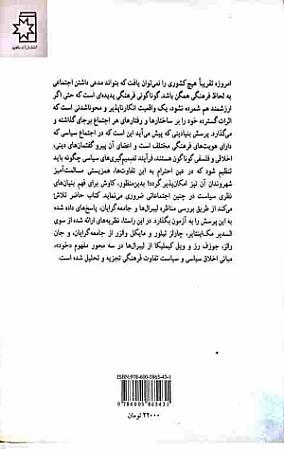 امروزه تقریباً هیچ کشوری را نمی‌توان یافت که بتواند مدعی داشتن اجتماعی
به لحاظ فرهنگی همگن باشد. گوناگونی فرهنگی پدیده‌ای است که حتی اگر
ارزشمند هم شمرده نشود، یک واقعیت انکارناپذیر و محوناشدنی است که
اثرات گسترده خود را بر ساختارها و رفتارهای هر اجتماع برجای گذاشته و
می‌گذارد. پرسش بنیادینی که پیش می‌آید این است که در اجتماع سیاسی که
دارای هویت‌های فرهنگی مختلف است و اعضای آن پیرو گفتمان‌های دینی،
اخلاقی و فلسفی گوناگون هستند، فرآیند تصمیم‌گیری‌های سیاسی چگونه باید
تنظیم شود که در عین احترام به این تفاوت‌ها، همزیستی مسالمت‌آمیز
شهروندان آن نیز امکان‌پذیر گردد؟ بدین‌منظور، کاوش برای فهم بنیان‌های
نظری سیاست در چنین اجتماعاتی ضروری می‌نماید. کتاب حاضر تلاش
می‌کند از طریق بررسی مناظره لیبرال‌ها و جامعه‌گرایان، پاسخ‌های داده شده
به این پرسش را به آزمون بگذارد. در این راستا، نظریه‌های ارائه شده از سوی
السدیر مک‌اینتایر، چارلز تیلور و مایکل والزر از جامعه‌گرایان، و جان
رالز، جوزف رز و ویل کیملیکا از لیبرال‌ها در سه محور مفهوم «خود»،
مبانی اخلاق سیاسی و سیاست تفاوت فرهنگی تجزیه و تحلیل شده است.
ISBN: 978-600-5865-43-1
9786005865431
۲۲۰۰۰ تومان